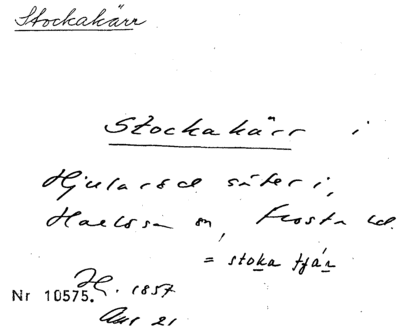 Stockakärr
Stockakärr i
Hjularöd säteri,
sn, Frosta hd.
= stoka tjär
Nr 10575. H. 1857
21